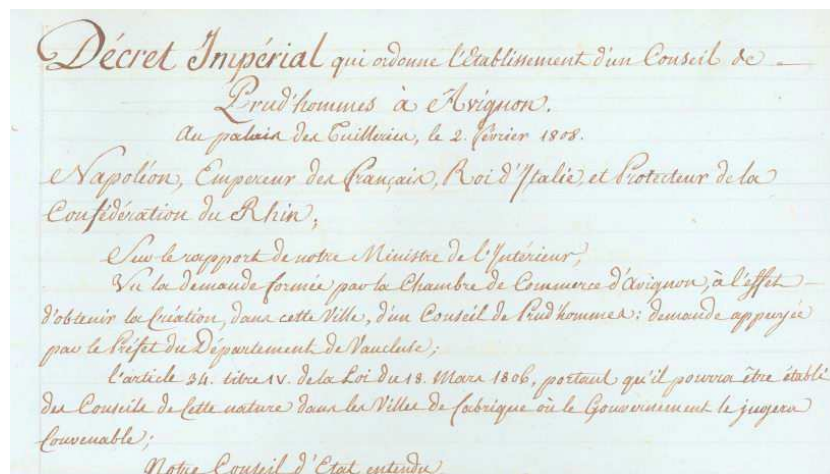 Décret Impérial qui ordonne l'Etablissement d'un Conseil de
Prud'hommes à Avignon.
Au palais des Tuilleries, le 2. février 1808.
Napoléon, Empereur des Français, Roi d'Italie, et Protecteur de la
Confédération du Rhin;
Sur le rapport de notre Ministre de l'Intérieur,
Vu la demande formée par la Chambre de Commerce d'Avignon, à l'effet
d'obtenir la Création, dans cette Ville, d'un Conseil de Prud'hommes: demande appuyée
par le Préfet du Département de Vaucluse;
l'article 34. titre IV. de la Loi du 18. Mars 1806, portant qu'il pourra être établi
des Conseils de Cette nature dans les Villes de fabrique où le Gouvernement le jugera
Convenable;
Notre Conseil d'Etat entendu